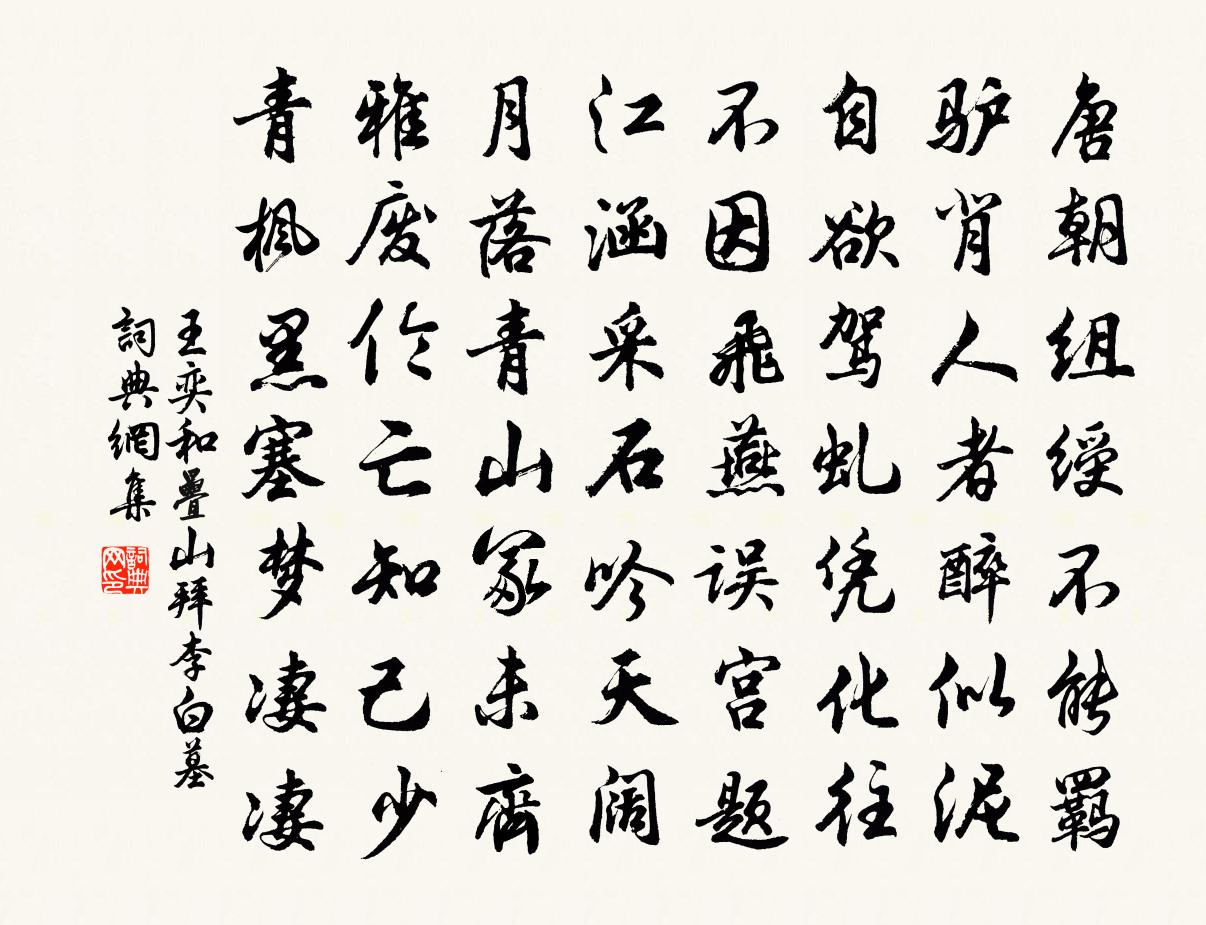 唐朝组绶不能羁
驴背人者醉似泥
自欲驾虬凭化往
不因飞燕误宫题
江涵采石吟天阔
月落青山冢未齐
雅废伶亡知己少
青枫黑塞梦凄凄
王奕和疊山拜李白墓
詞典網集
詞典网印